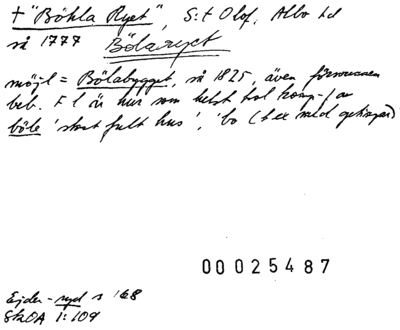 † "Böhla Ryet", S:t Olof, Albo hd
så 1777 Bölaryet
möjl = Bölabygget, så 1825, även försvunnen
beb. F l är hur som helst tal komp-l av
böle 'stort fult hus', 'bo (t ex med getingar)
00025487
Ejder-ryd s 168
SkOA 1:109